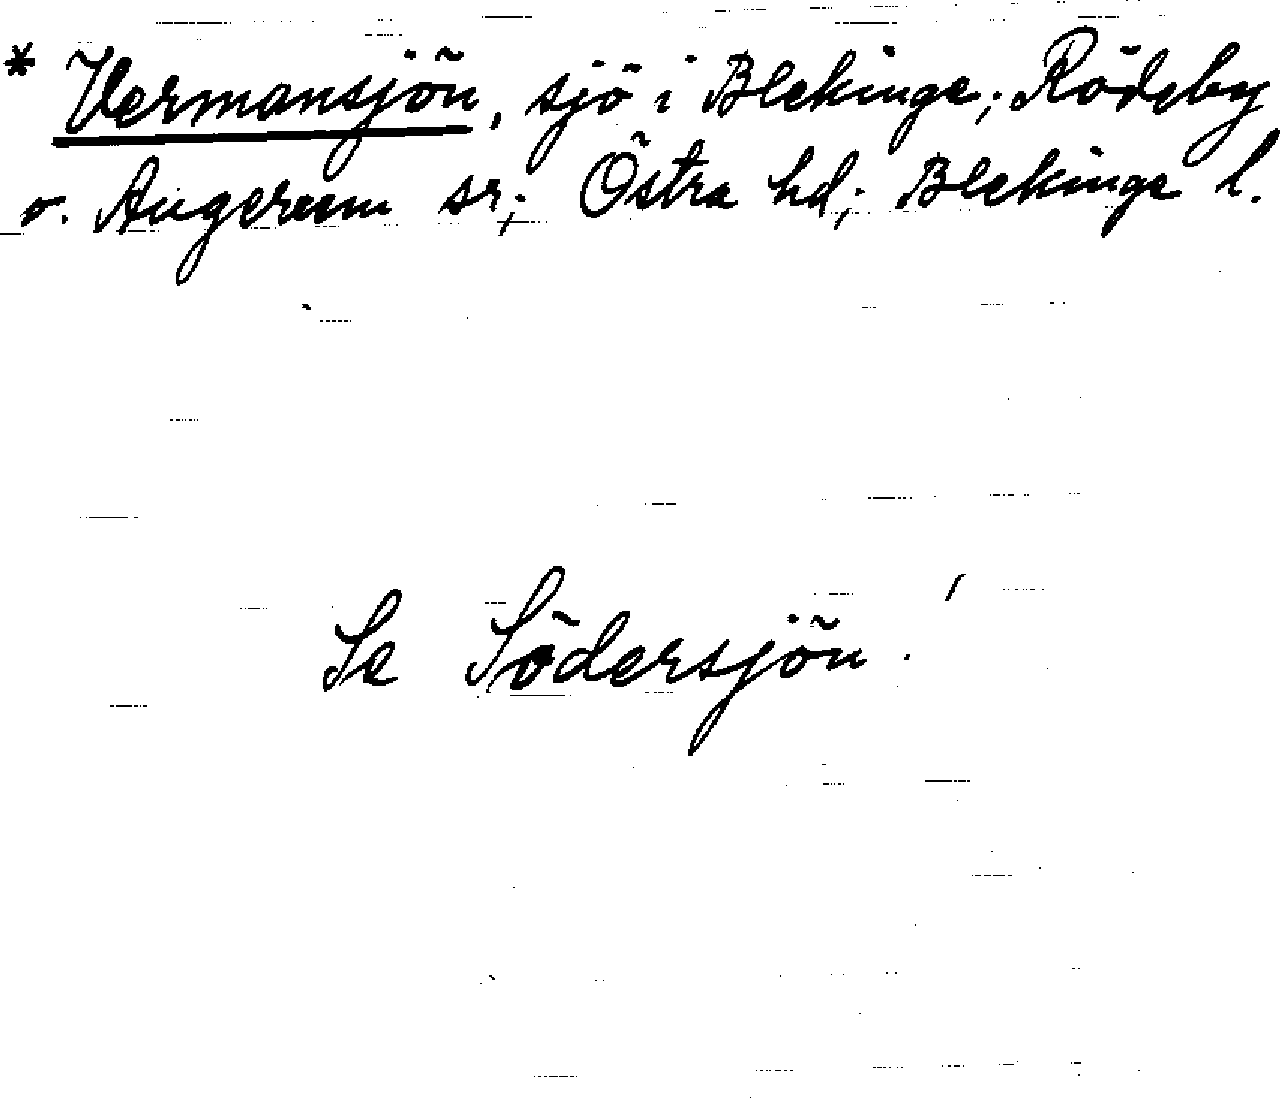 * Vermansjön, sjö i Blekinge; Rödeby
o. Augerum sr; Östra hd; Blekinge l.
Se Södersjön!